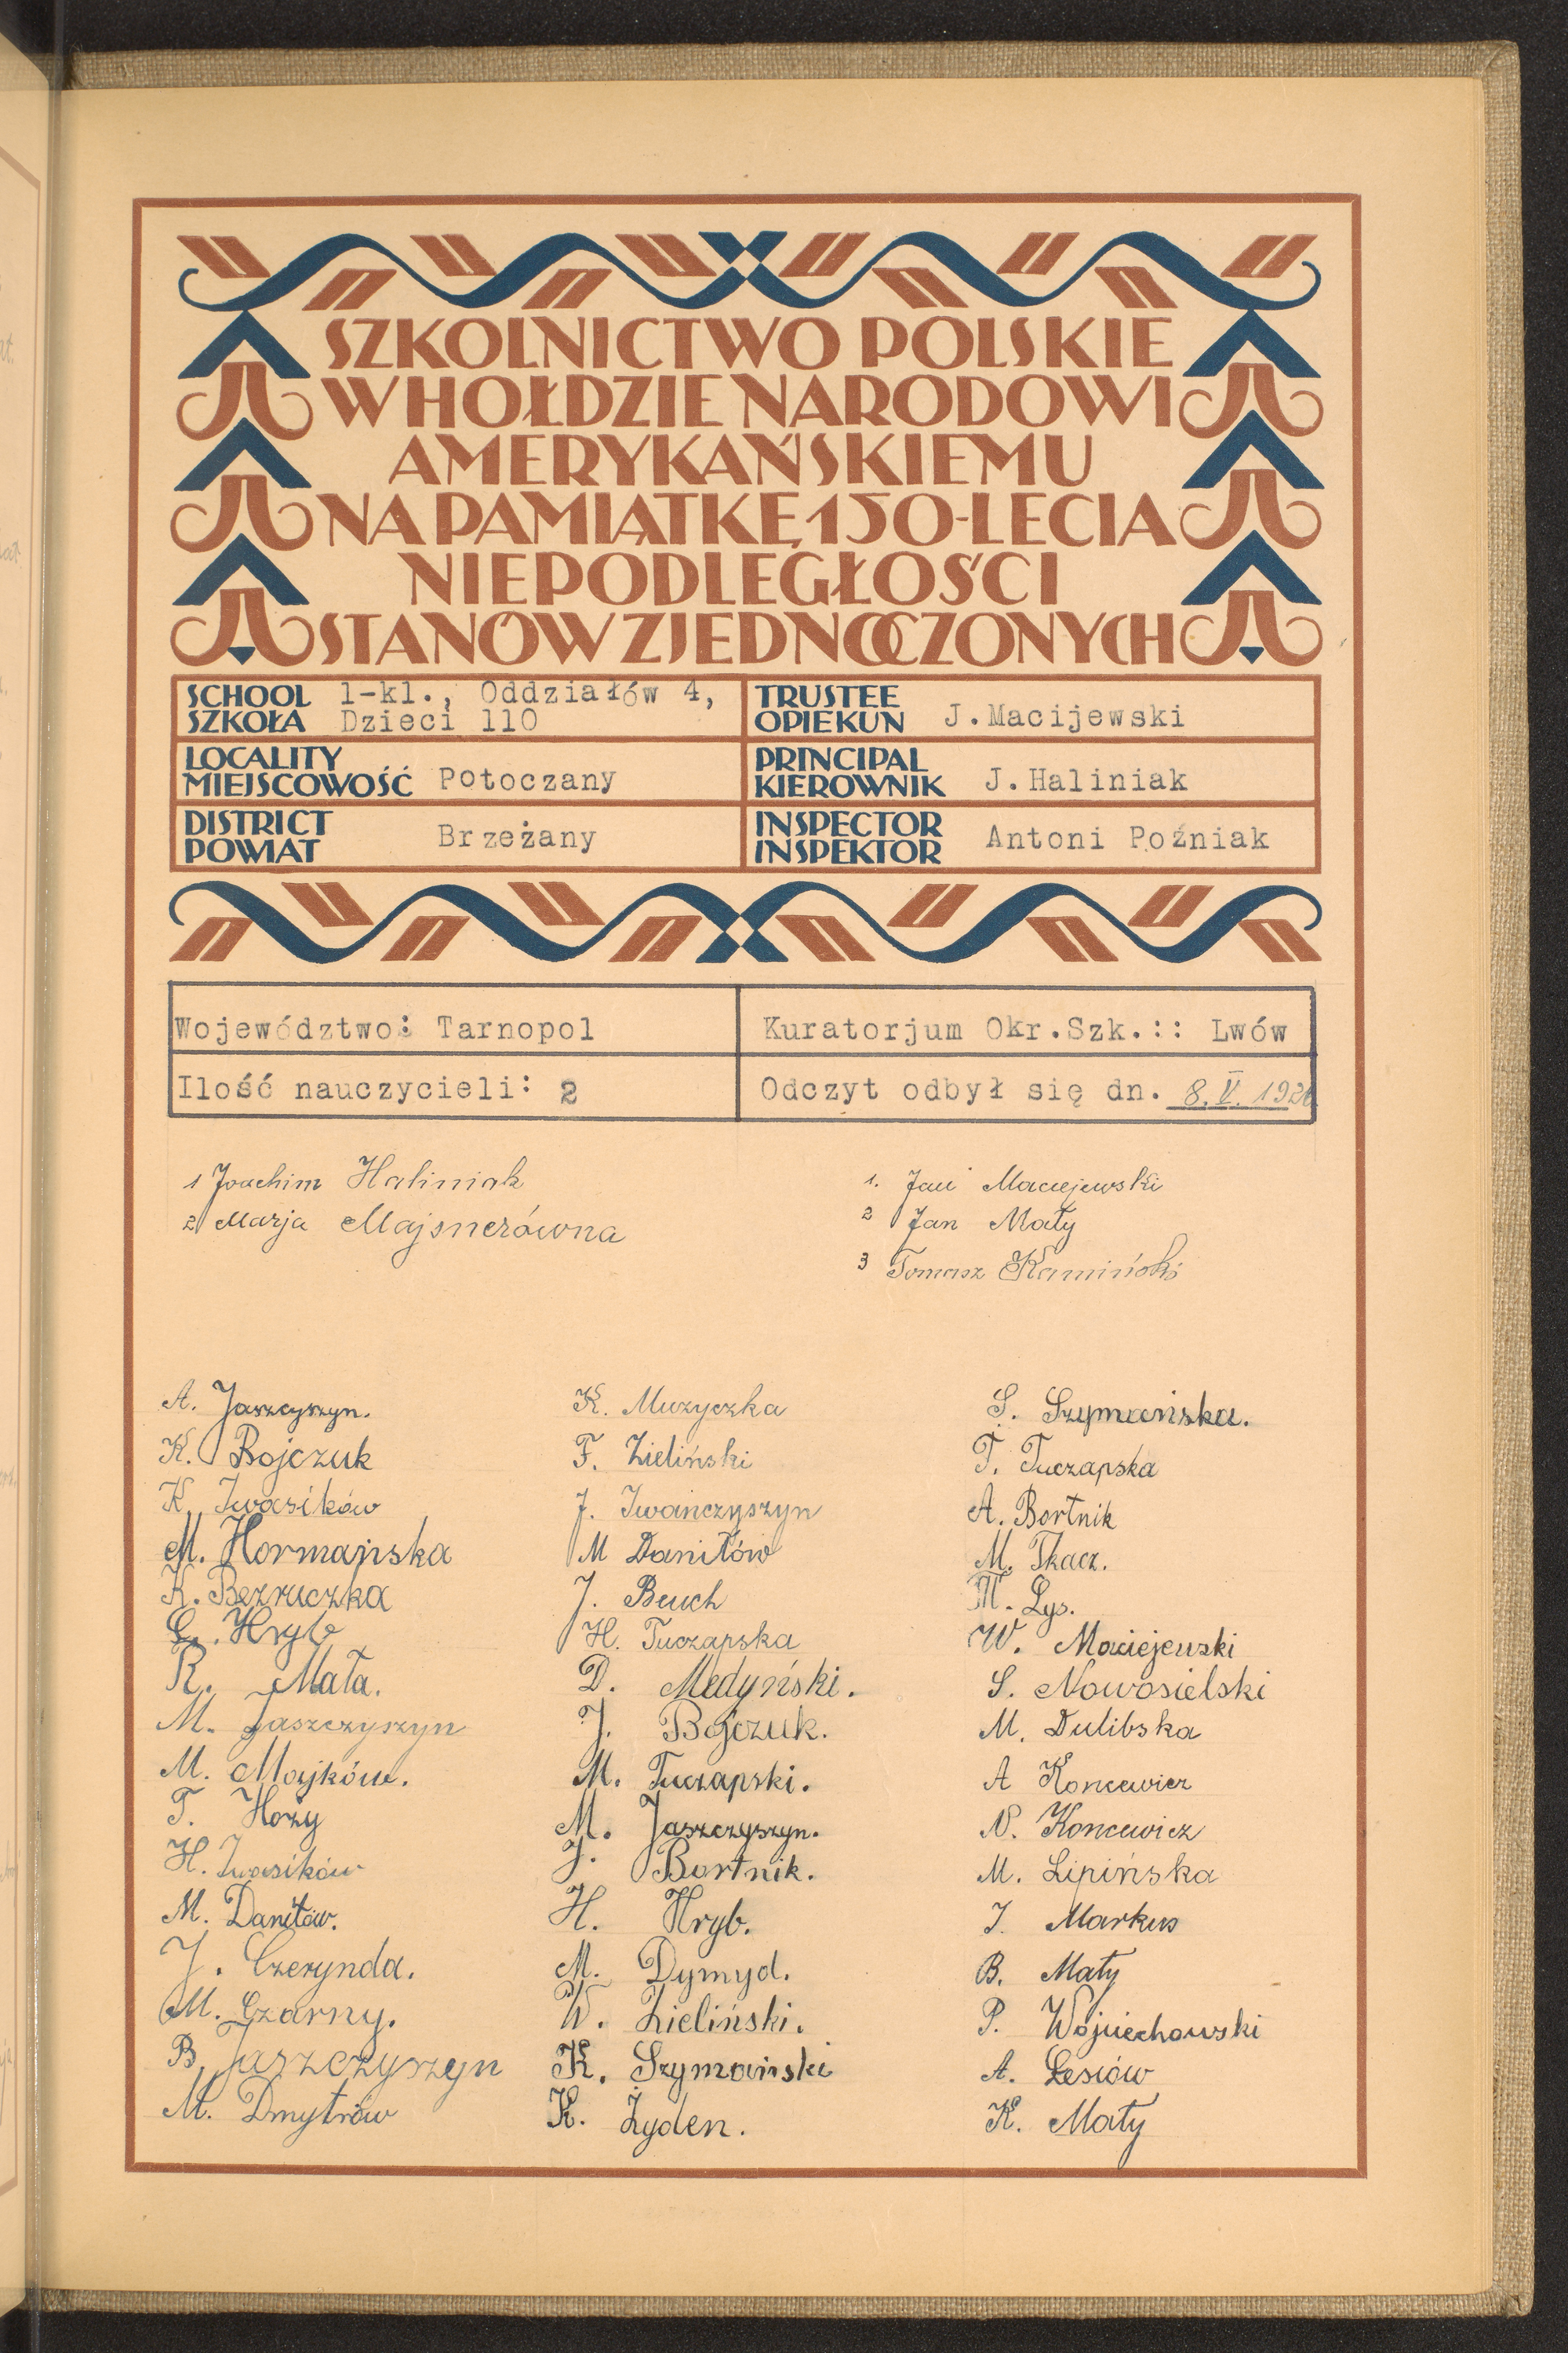 SZKOLNICTWO POLSKIE
W HOŁDZIE NARODOWI
AMERYKAŃSKIEMU
NA PAMIĄTKĘ 150-LECIA
NIEPODLEGŁOŚCI
STANÓW ZJEDNOCZONYCH
SCHOOL
SZKOŁA
1-kl., Oddziałów 4,
Dzieci 110
TRUSTEE
OPIEKUN
J.Macijewski
LOCALITY
MIEJSCOWOŚĆ
Potoczany
PRINCIPAL
KIEROWNIK
J.Haliniak
DISTRICT
POWIAT
Brzeżany
INSPECTOR
INSPEKTOR
Antoni Poźniak
Województwo: Tarnopol
Kuratorjum Okr.Szk.:: Lwów
Ilość nauczycieli: 2
Odczyt odbył się dn. 8.V.1926
1 Joachim Haliniak
2 Marja Majsnerówna
1. Jan Maciejewski
2 Jan Mały
3 Tomasz Kamiński
A. Jaszcyszyn.
K. Bojczuk
K. Iwasików
M. Hormańska
K. Bezruczka
G. Hryb
R. Mała.
M. Jaszczyszyn
M. Mojków.
T. Hoży
H. Iwasików
M. Daniłów.
J. Czerynda.
M. Czarny.
B. Jaszczyszyn
M. Dmytrów
K. Muzyczka
F. Zieliński
J. Iwańczyszyn
M Daniłów
J. Beuch
H. Tuczapska
D. Medyński.
J. Bojczuk.
M. Tuczapski.
M. Jaszczyszyn.
J. Bortnik.
H. Hryb.
M. Dymyd.
W. Zieliński.
K. Szymański
K. Żyden.
S. Szymańska.
T. Tuczapska
A. Bortnik
M. Tkacz.
M. Lys.
W. Maciejewski
S. Nowosielski
M. Dulibska
A Koncewicz
N. Koncewicz
M. Lipińska
J. Markus
B. Mały
P. Wojciechowski
A. Lesiów
K. Mały